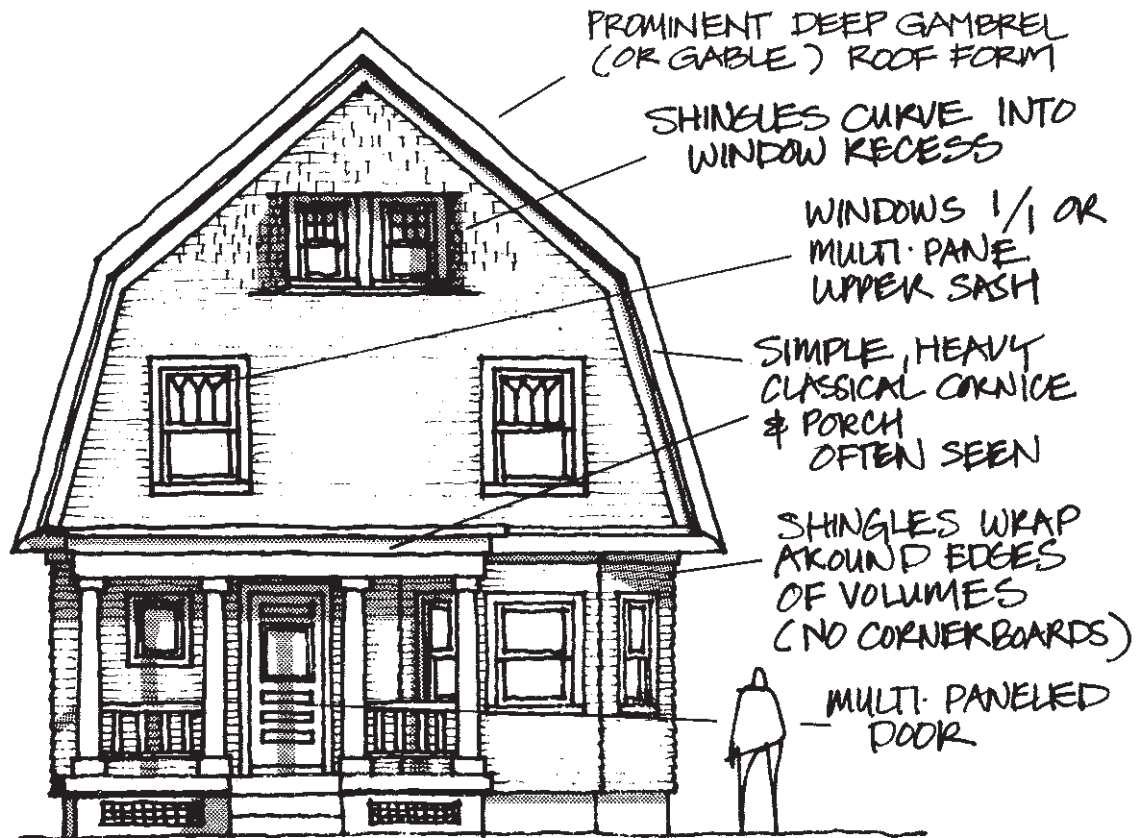 PROMINENT DEEP GAMBREL
(OR GABLE) ROOF FORM
SHINGLES CURVE INTO
WINDOW RECESS
WINDOWS 1/1 OR
MULTI-PANE
UPPER SASH
SIMPLE, HEAVY
CLASSICAL CORNICE
& PORCH
OFTEN SEEN
SHINGLES WRAP
AROUND EDGES
OF VOLUMES
(NO CORNERBOARDS)
MULTI-PANELED
DOOR